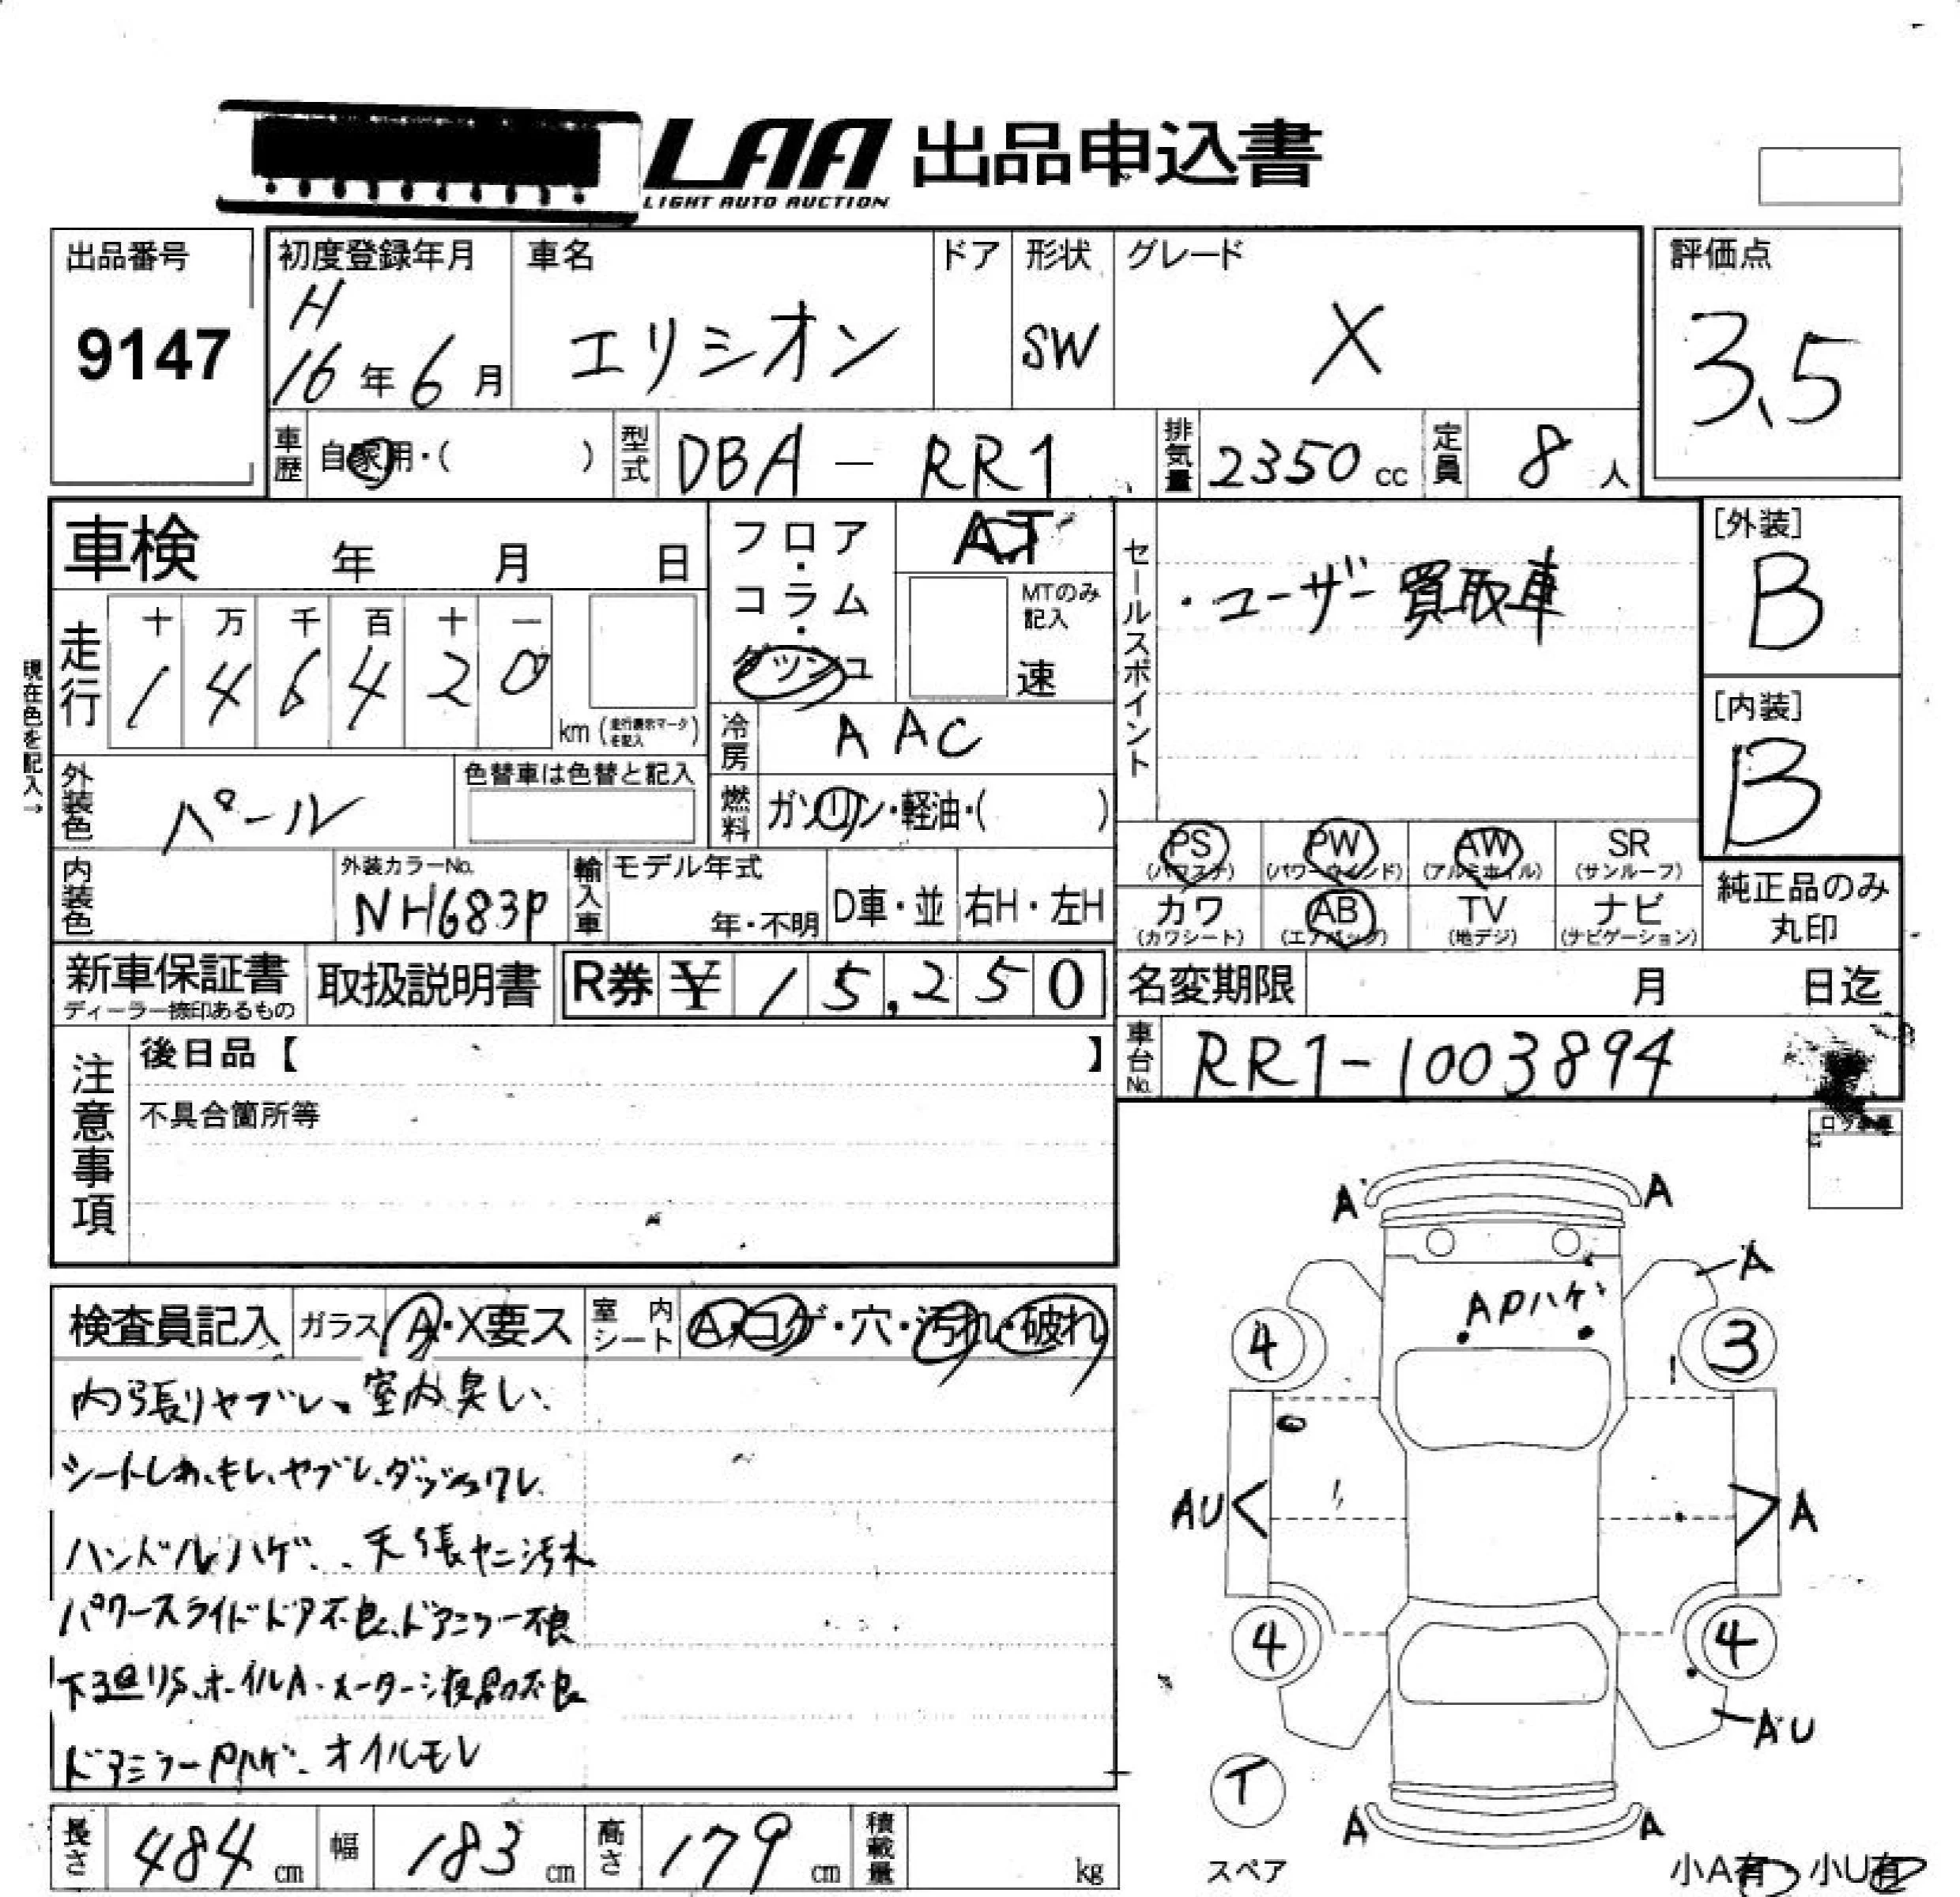 LAA 出品申込書
LIGHT AUTO AUCTION
出品番号
9147
初度登録年月
H
16年6月
車名
エリシオン
ドア
形状
SW
グレード
X
評価点
3.5
車歴
自家用・( )
型式
DBA-RR1
排気量
2350cc
定員
8人
車検 年 月 日
フロア・コラム・ダッシュ
AT
MTのみ記入
速
セールスポイント
・ユーザー買取車
[外装]
B
[内装]
B
現在色を記入→
走行
十 万 千 百 十 一
1 4 6 4 2 0
km (走行表示マークを記入)
冷房
AAC
燃料
ガソリン・軽油・( )
外装色
パール
色替車は色替と記入
内装色
外装カラーNo.
NH683P
輸入車
モデル年式
年・不明
D車・並
右H・左H
PS (パワステ)
PW (パワーウィンド)
AW (アルミホイル)
SR (サンルーフ)
カワ (カワシート)
AB (エアバッグ)
TV (地デジ)
ナビ (ナビゲーション)
純正品のみ
丸印
新車保証書
ディーラー捺印あるもの
取扱説明書
R券 ¥15,250
名変期限 月 日迄
車台No.
RR1-1003894
注意事項
後日品【 】
不具合箇所等
検査員記入
ガラス A・X要ス
室内シート
A・コゲ・穴・汚れ・破れ
内張りヤブレ、室内臭い、
シートしわ、モレ、ヤブレ、ダッシュワレ
ハンドルハゲ、天張ヤニ汚れ
パワースライドドア不良、ドアミラー不良
下廻りS、ホイルA、メーター液晶不良
ドアミラーPハゲ、オイルモレ
A A
A
APハゲ
4 3
AU A
4 4
AU
T
スペア
A A
小A有 小U有
長さ 484 cm
幅 183 cm
高さ 179 cm
積載量 kg